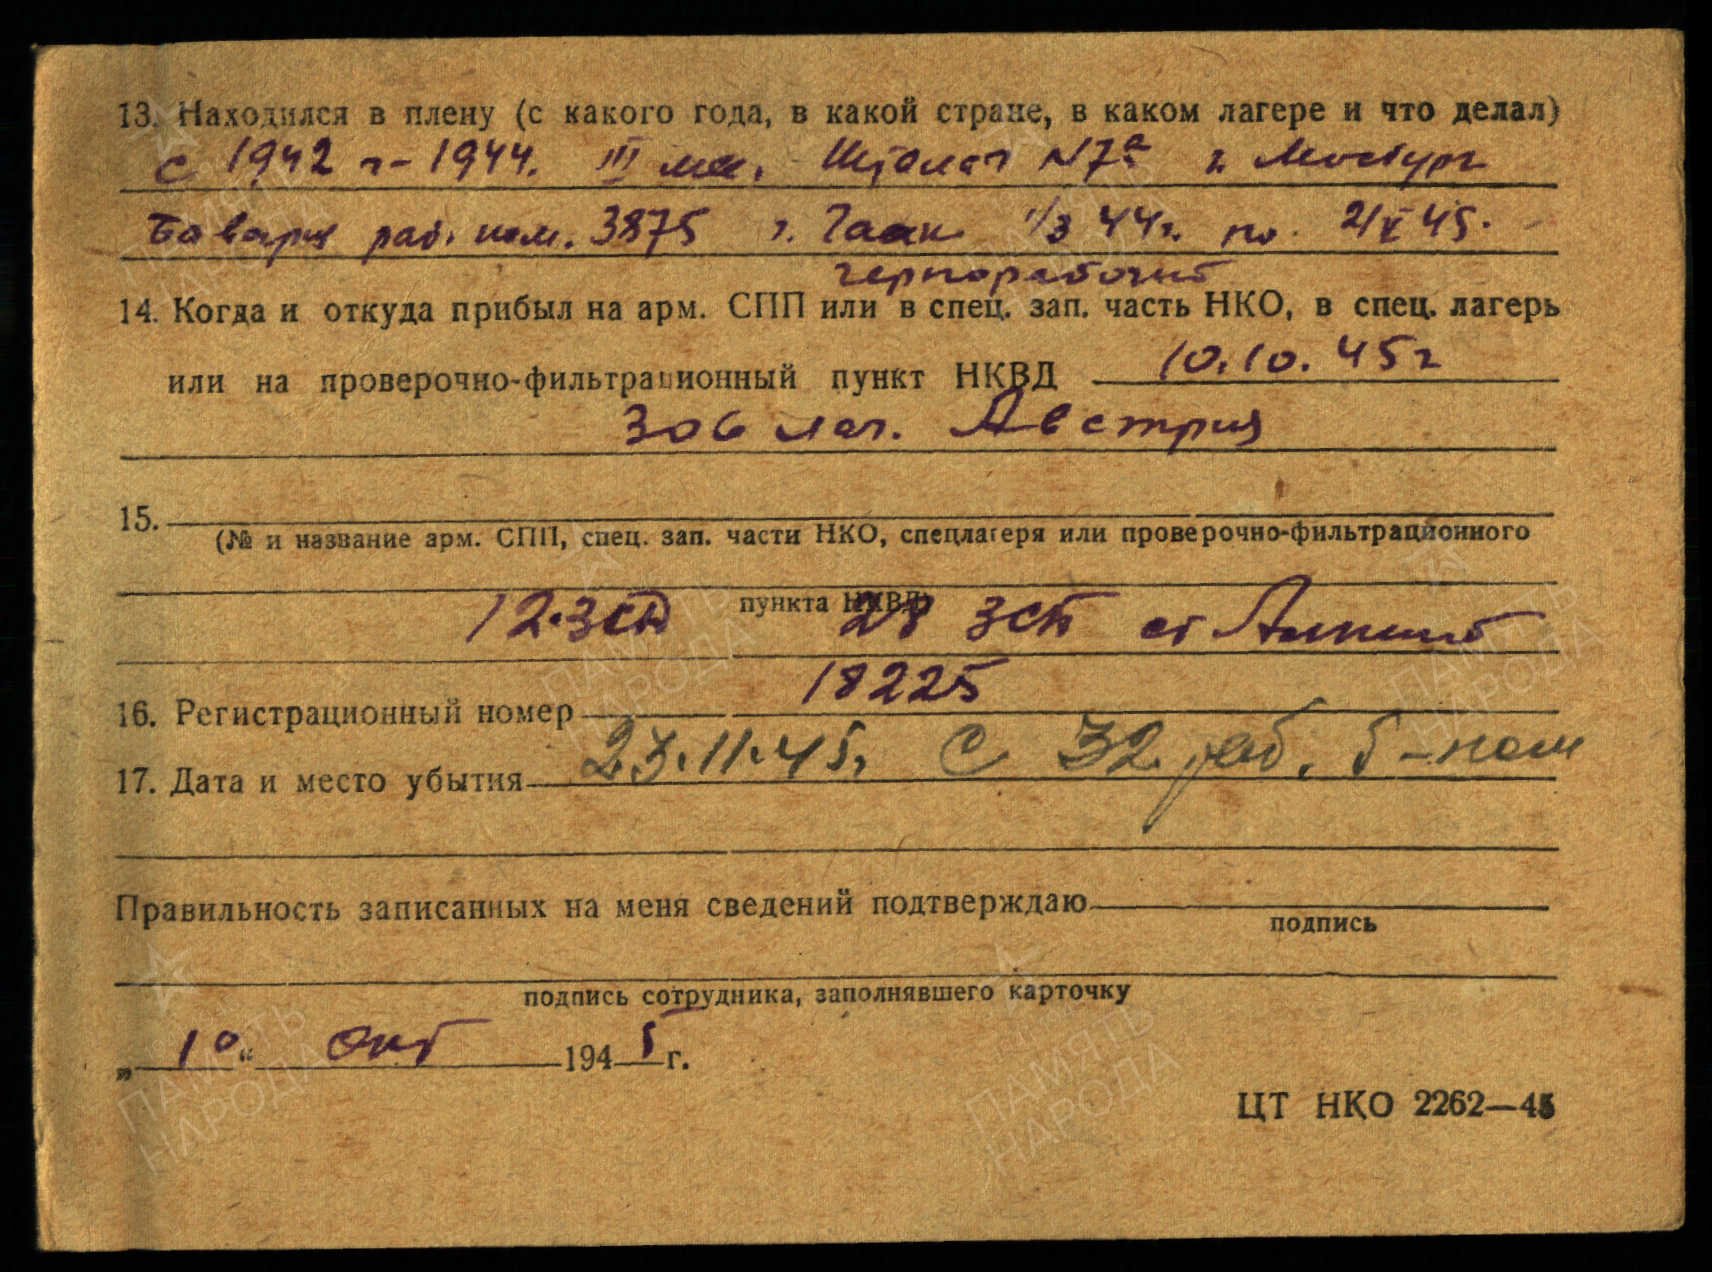 13. Находился в плену (с какого года, в какой стране, в каком лагере и что делал)
с 1942 г-1944. III Шталаг N7а г. Мосбург
Бавария раб. ком. 3875 г. Гаак 1/3 44г. по 2/V 45.
чернорабочий
14. Когда и откуда прибыл на арм. СПП или в спец. зап. часть НКО, в спец. лагерь
или на проверочно-фильтрационный пункт НКВД 10.10.45г
306 лаг. Австрия
15.
(№ и название арм. СПП, спец. зап. части НКО, спецлагеря или проверочно-фильтрационного
пункта НКВД)
12.зсд 28 зсп ст
16. Регистрационный номер 18225
17. Дата и место убытия 23.11.45. С 32 раб. б-ном
Правильность записанных на меня сведений подтверждаю
подпись
подпись сотрудника, заполнявшего карточку
„10“ окт 1945г.
ЦТ НКО 2262—45
ПАМЯТЬ НАРОДА